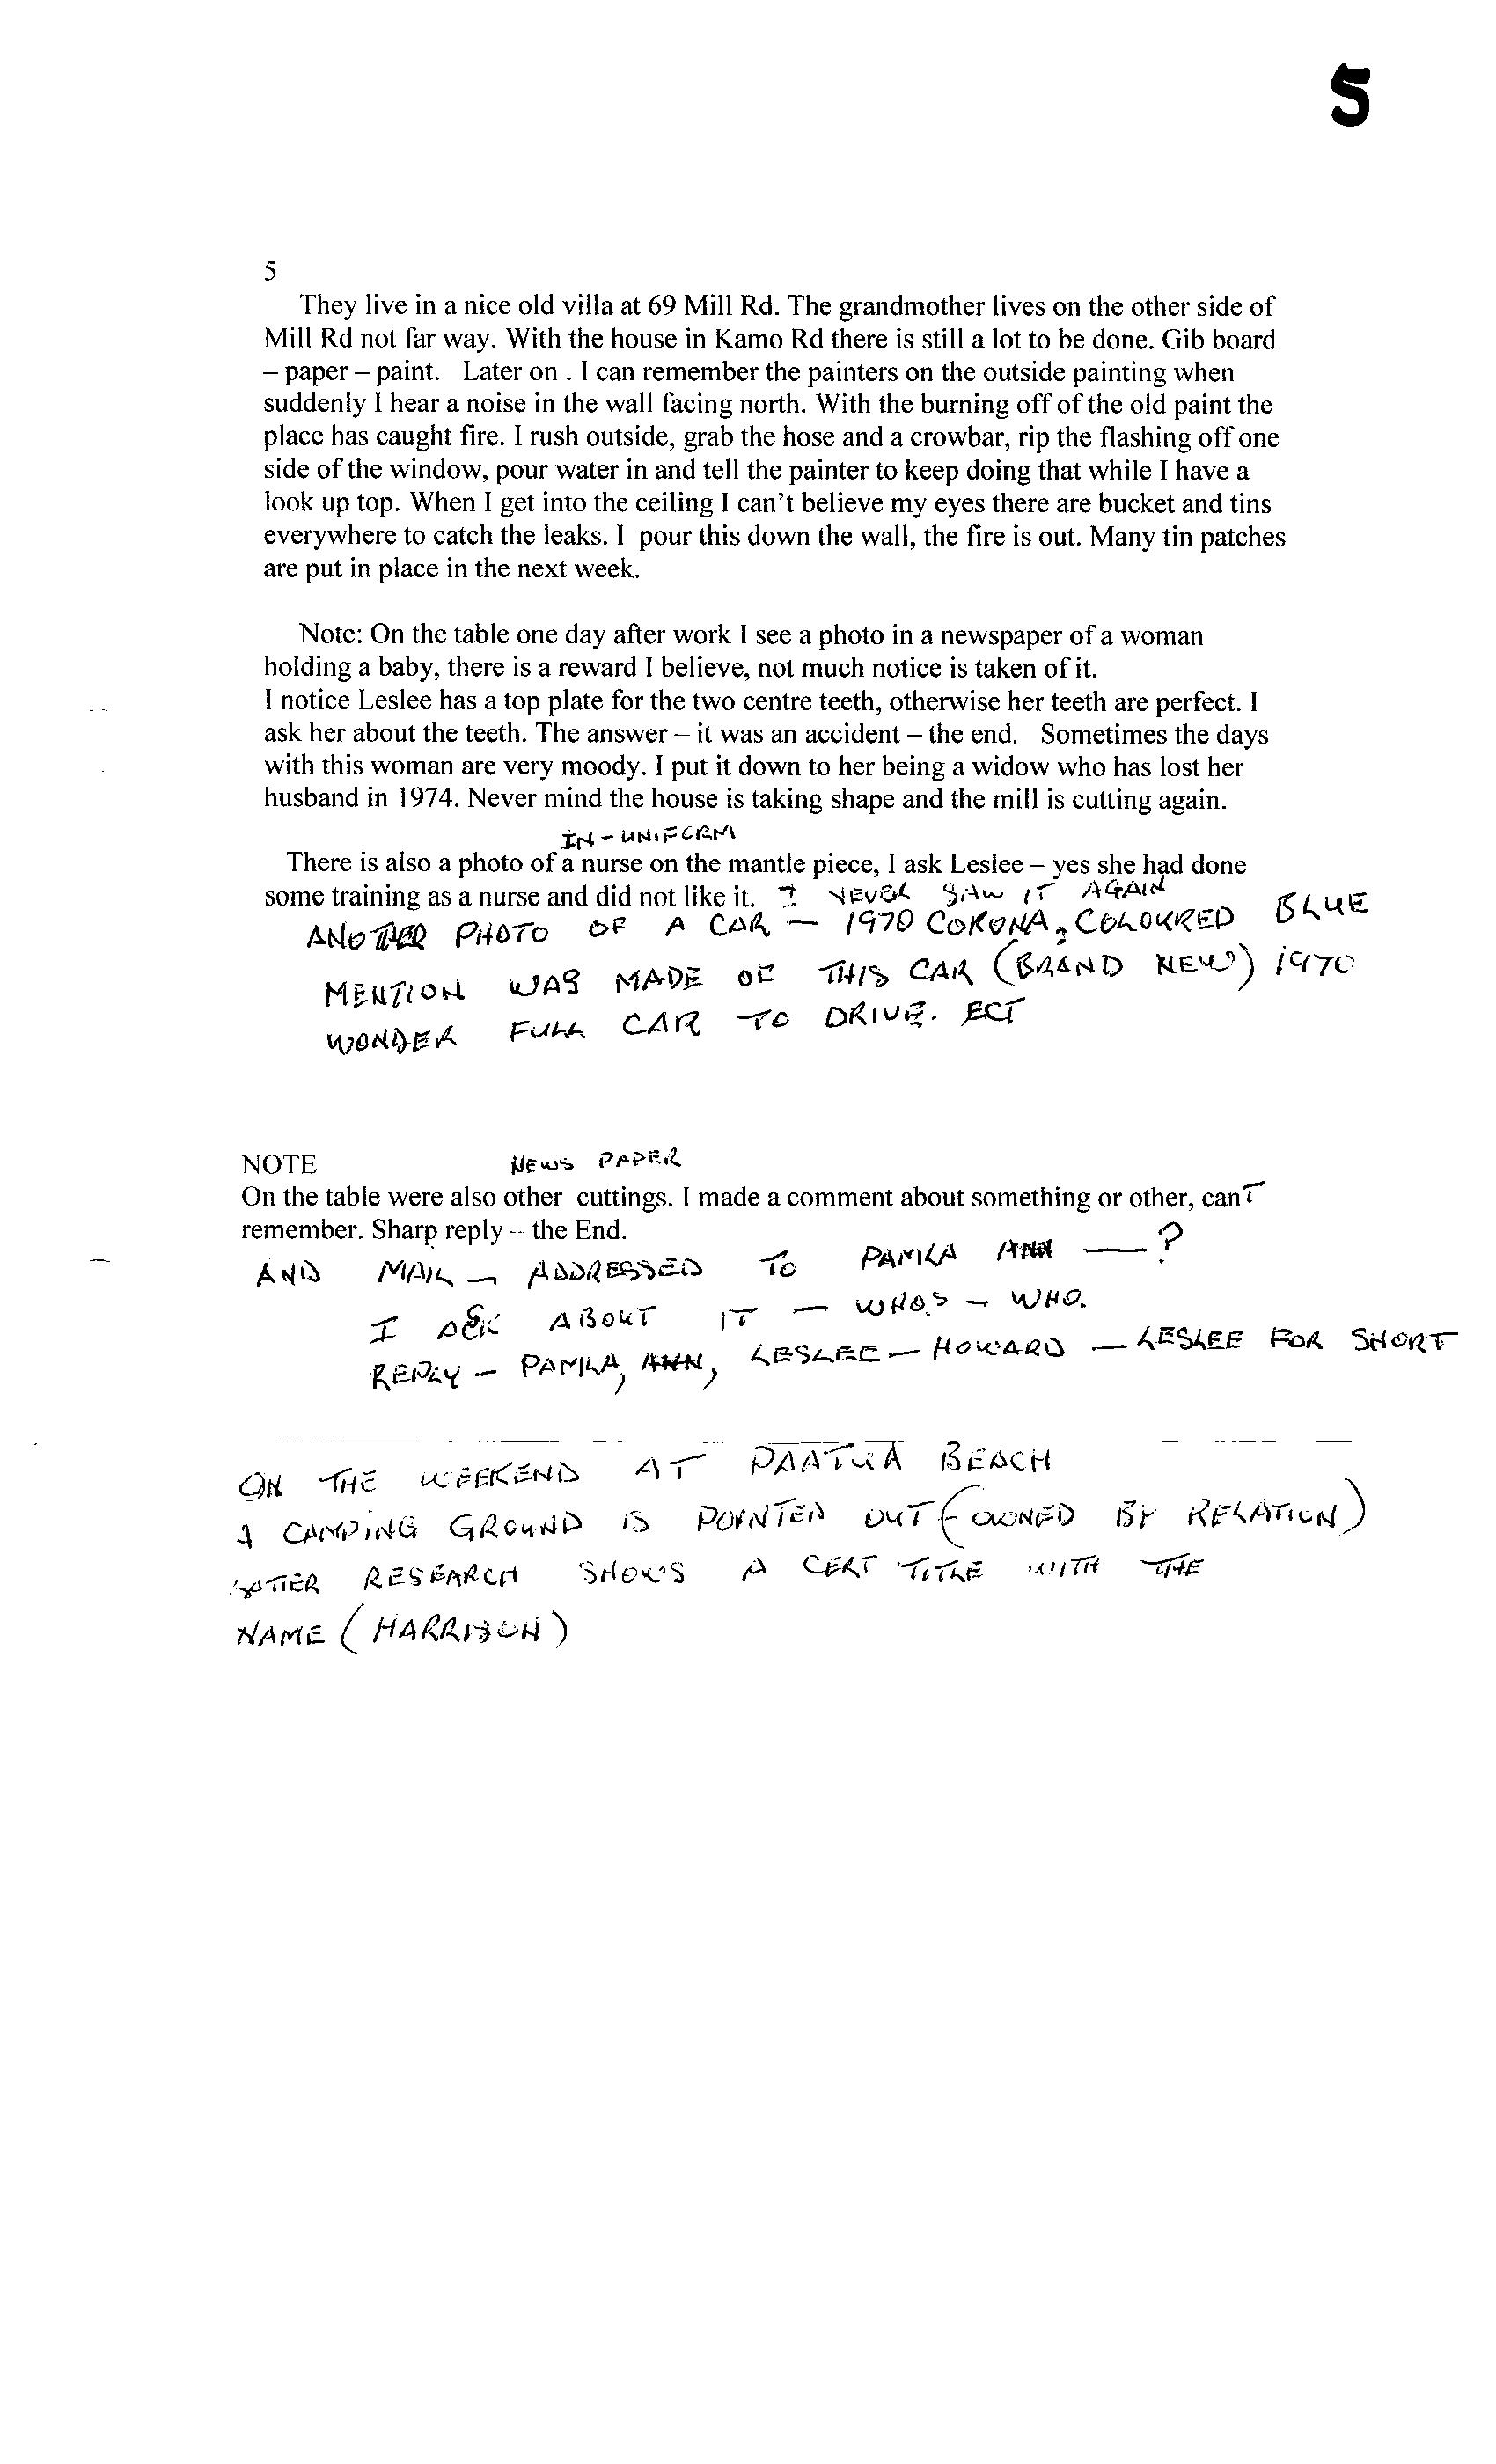 5
5
They live in a nice old villa at 69 Mill Rd. The grandmother lives on the other side of
Mill Rd not far way. With the house in Kamo Rd there is still a lot to be done. Gib board
– paper – paint. Later on . I can remember the painters on the outside painting when
suddenly I hear a noise in the wall facing north. With the burning off of the old paint the
place has caught fire. I rush outside, grab the hose and a crowbar, rip the flashing off one
side of the window, pour water in and tell the painter to keep doing that while I have a
look up top. When I get into the ceiling I can't believe my eyes there are bucket and tins
everywhere to catch the leaks. I pour this down the wall, the fire is out. Many tin patches
are put in place in the next week.
Note: On the table one day after work I see a photo in a newspaper of a woman
holding a baby, there is a reward I believe, not much notice is taken of it.
I notice Leslee has a top plate for the two centre teeth, otherwise her teeth are perfect. I
ask her about the teeth. The answer – it was an accident – the end. Sometimes the days
with this woman are very moody. I put it down to her being a widow who has lost her
husband in 1974. Never mind the house is taking shape and the mill is cutting again.
IN - UNIFORM
There is also a photo of a nurse on the mantle piece, I ask Leslee – yes she had done
some training as a nurse and did not like it. I NEVER SAW IT AGAIN
ANOTHER PHOTO OF A CAR — 1970 CORONA, COLOURED BLUE
MENTION WAS MADE OF THIS CAR (BRAND NEW) 1970
WONDER FULL CAR TO DRIVE. ECT
NOTE NEWS PAPER
On the table were also other cuttings. I made a comment about something or other, canT
remember. Sharp reply – the End.
AND MAIL — ADDRESSED TO PAMLA ANN — ?
I ASK ABOUT IT — WHO,S — WHO.
REPLY — PAMLA, ANN, LESLEE — HOWARD — LESLEE FOR SHORT
ON THE WEEKEND AT PAATUA BEACH
A CAMPING GROUND IS POINTED OUT (OWNED BY RELATION)
LATTER RESEARCH SHOWS A CERT TITLE WITH THE
NAME (HARRISON)